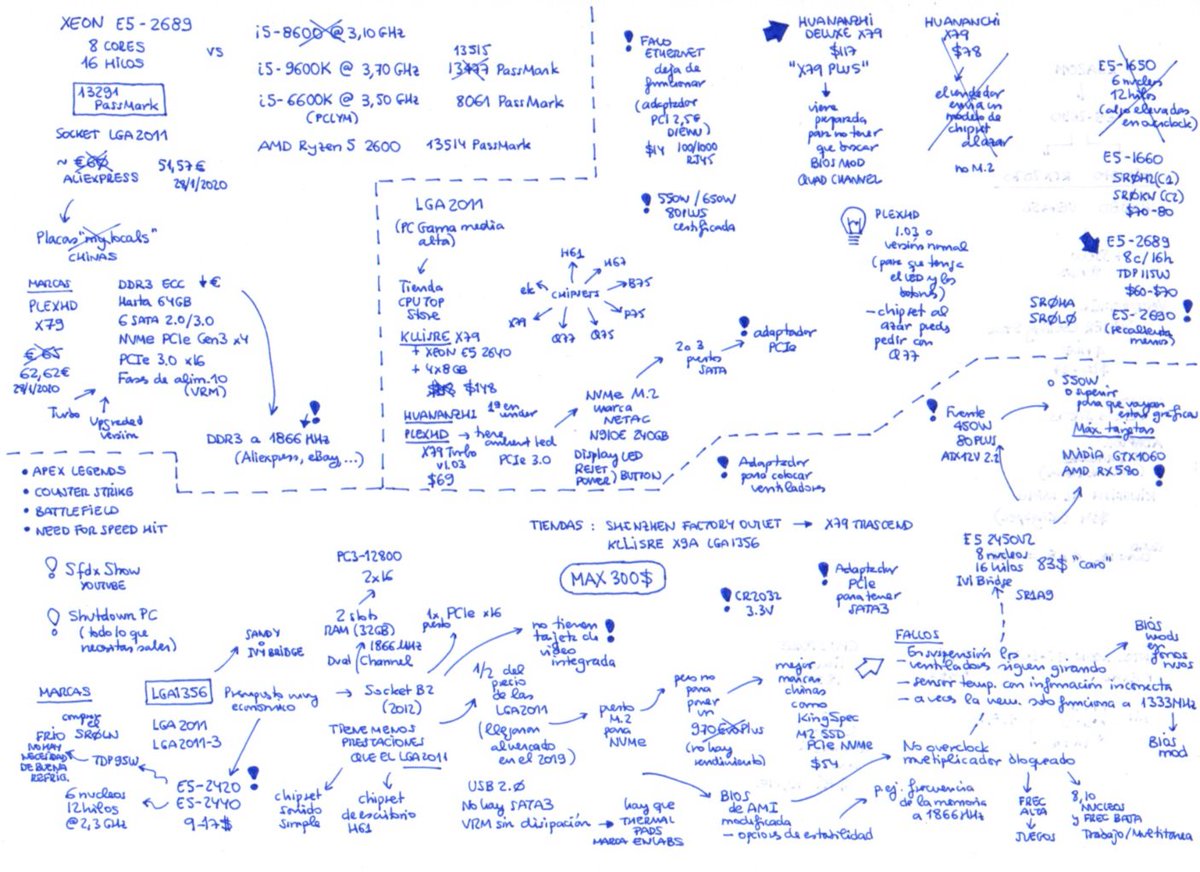 XEON E5-2689
8 CORES
16 HILOS
13291
PassMark
SOCKET LGA2011
~ €60
ALIEXPRESS
51,57€
29/1/2020
Placas "my locals"
CHINAS
VS
i5-8600 @ 3,10 GHz
i5-9600K @ 3,70 GHz
13515
13477 PassMark
i5-6600K @ 3,50 GHz
8061 PassMark
(PCLYM)
AMD Ryzen 5 2600
13514 PassMark
MARCAS
PLEXHD
X79
€65
62,62€
29/1/2020
Turbo
Upgraded
version
DDR3 ECC ↓€
Hasta 64GB
6 SATA 2.0/3.0
NVMe PCIe Gen3 x4
PCIe 3.0 x16
Fases de alim. 10
(VRM)
DDR3 a 1866 MHz
(Aliexpress, eBay,...)
LGA2011
(PC Gama media
alta)
Tienda
CPU TOP
Store
KLLISRE X79
+ XEON E5 2640
+ 4x8GB
$148
HUANANZHI
PLEXHD
X79 Turbo
v1.03
$69
PCIe 3.0
CHIPSETS
H61
H67
B75
P75
Q75
Q77
X79
etc
NVMe M.2
marca
NETAC
N910E 240GB
Display LED
RESET
POWER) BUTTON
2 o 3
puertos
SATA
! adaptador
PCIe
! FALO
ETHERNET
deja de
funcionar
(adaptador
PCI 2,5G
DIEWU)
$14 100/1000
RJ45
! 550W / 650W
80PLUS
certificada
HUANANZHI
DELUXE X79
$117
"X79 PLUS"
viene
preparada
para no tener
que tocar
BIOS MOD
QUAD CHANNEL
HUANANCHI
X79
$78
el vendedor
envia un
modelo de
chipset
al azar
no M.2
E5-1650
6 nucleos
12 hilos
(algo elevados
en overclock)
E5-1660
SR0H2(C1)
SR0KN (C2)
$70-80
E5-2689
8c/16h
TDP 115W
$60-$70
SR0HA
SR0L0
E5-2690 !
(recalienta
menos)
PLEXHD
1.03 o
versión normal
(para que tenga
el LED y los
botones)
- chipset al
azar pedir con
Q77
! Adaptador
para colocar
ventiladores
! Fuente
450W
80PLUS
ATX12V 2.2
o 550W
o superior
para que vayan
estas gráficas
Máx. tarjetas
NVIDIA GTX1060
AMD RX580 !
• APEX LEGENDS
• COUNTER STRIKE
• BATTLEFIELD
• NEED FOR SPEED HIT
! Sfdx Show
YOUTUBE
Shutdown PC
(todo lo que
necesitas saber)
TIENDAS : SHENZHEN FACTORY OUTLET → X79 TRASCEND
KLLISRE X9A LGA1356
MAX 300$
! CR2032
3.3V
! Adaptador
PCIe
para tener
SATA3
E5 2450V2
8 nucleos
16 hilos
IVI Bridge
83$ "caro"
SR1A9
MARCAS
LGA1356
LGA2011
LGA2011-3
SANDY
IVI BRIDGE
Presupuesto muy
económico
comprar
el
SR0LN
FRÍO
NO HAY
NECESIDAD
DE BUENA
REFRIG.
TDP95W
E5-2420 !
E5-2440
9-17$
6 nucleos
12 hilos
@2,3GHz
PC3-12800
2x16
2 slots
RAM (32GB)
1866 MHz
Dual Channel
1x PCIe x16
puerto
Socket B2
(2012)
TIENE MENOS
PRESTACIONES
QUE EL LGA2011
chipset
sonido
simple
chipset
de escritorio
H61
no tienen
tarjeta de
video
integrada
1/2 del
precio
de las
LGA2011
(llegaron
al mercado
en el 2019)
puerto
M.2
para
NVMe
pero no
para
poner
un
970 Plus
(no hay
rendimiento)
mejor
marcas
chinas
como
KingSpec
M2 SSD
PCIe NVME
$54
USB 2.0
No hay SATA3
VRM sin disipación
hay que
THERMAL
PADS
MARCA ENLABS
BIOS
de AMI
modificada
- opciones de estabilidad
p ej. frecuencia
de la memoria
a 1866MHz
FALLOS
- En suspensión los
ventiladores siguen girando
- sensor temp. con información incorrecta
- a veces la mem. solo funciona a 1333MHz
BIOS
mods
en
foros
rusos
BIOS
mod
No overclock
multiplicador bloqueado
FREC
ALTA
JUEGOS
8,10
NUCLEOS
y FREC BAJA
Trabajo/Multitarea